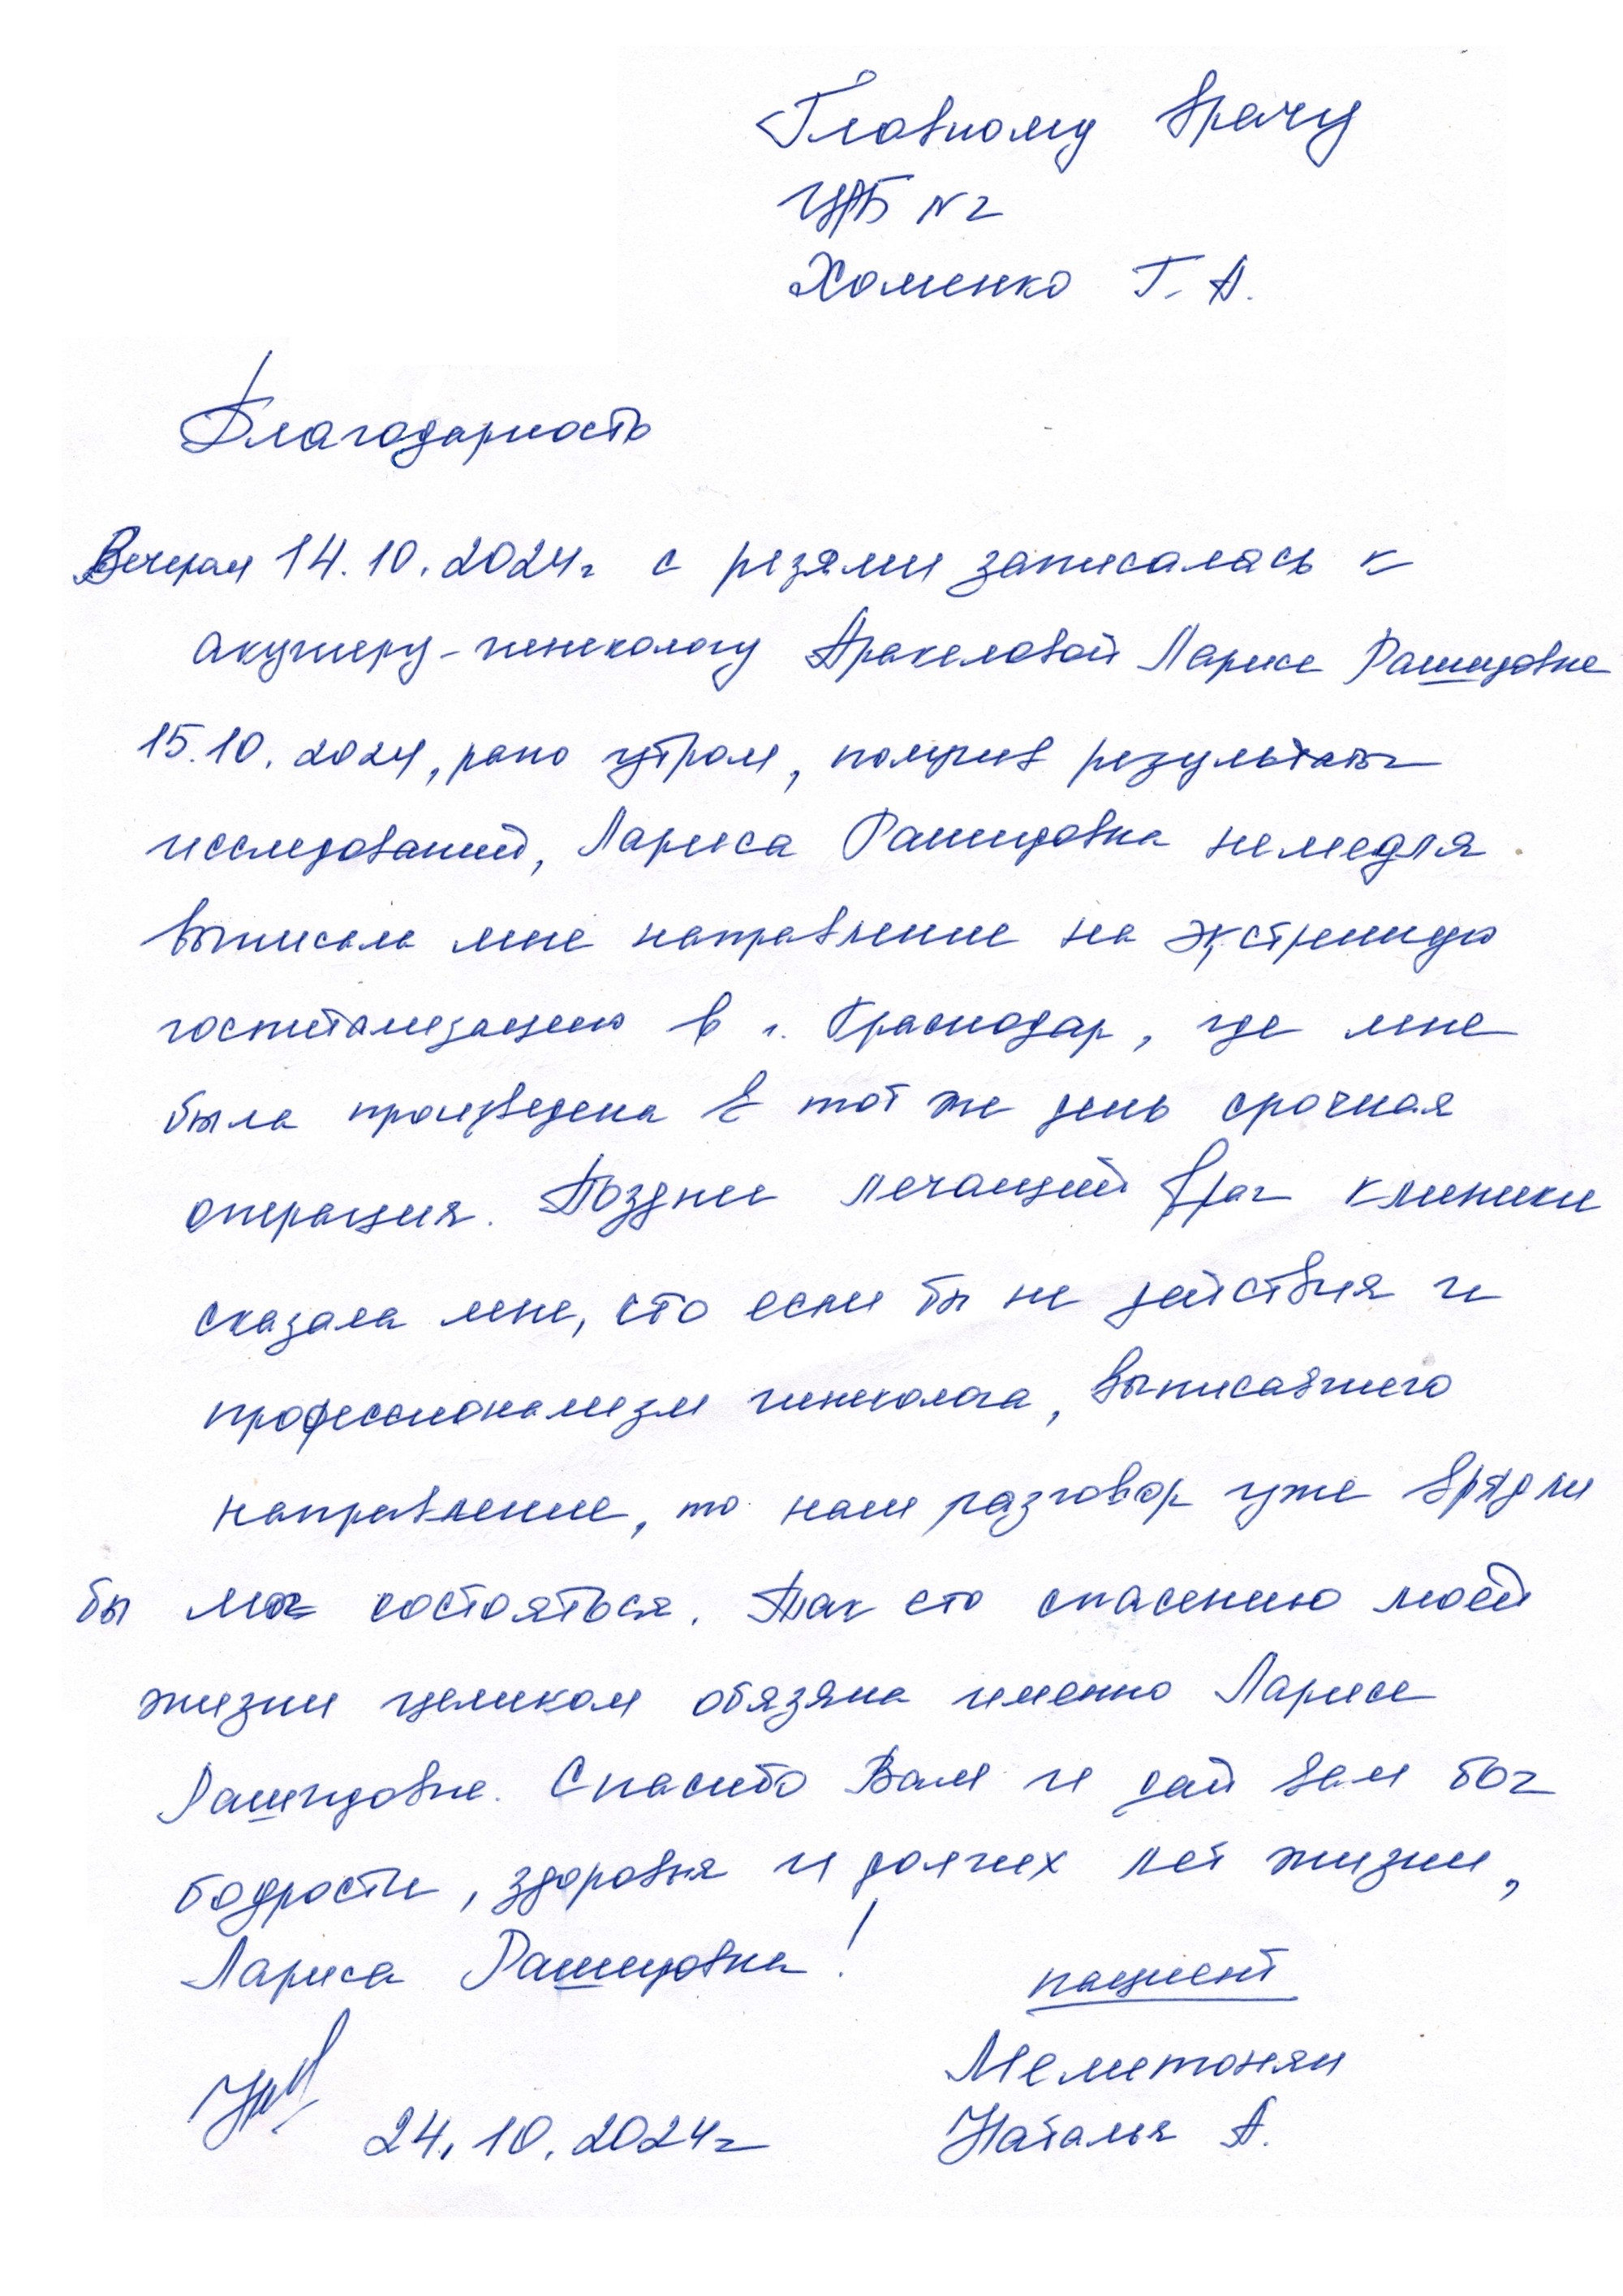 Главному врачу
ЦРБ №2
Хоменко Г. А.
Благодарность
Вечером 14.10.2024г с резями записалась к
акушеру-гинекологу Аракеловой Ларисе Рашидовне
15.10.2024, рано утром, получив результаты
исследований, Лариса Рашидовна немедля
выписала мне направление на экстренную
госпитализацию в г. Краснодар, где мне
была произведена в тот же день срочная
операция. Позднее лечащий врач клиники
сказала мне, что если бы не действия и
профессионализм гинеколога, выписавшего
направление, то наш разговор уже врядли
бы мог состояться. Так что спасению моей
жизни целиком обязяна именно Ларисе
Рашидовне. Спасибо Вам и дай вам бог
бодрости, здоровья и долгих лет жизни,
Лариса Рашидовна!
пациент
Наталья А.
24.10.2024г